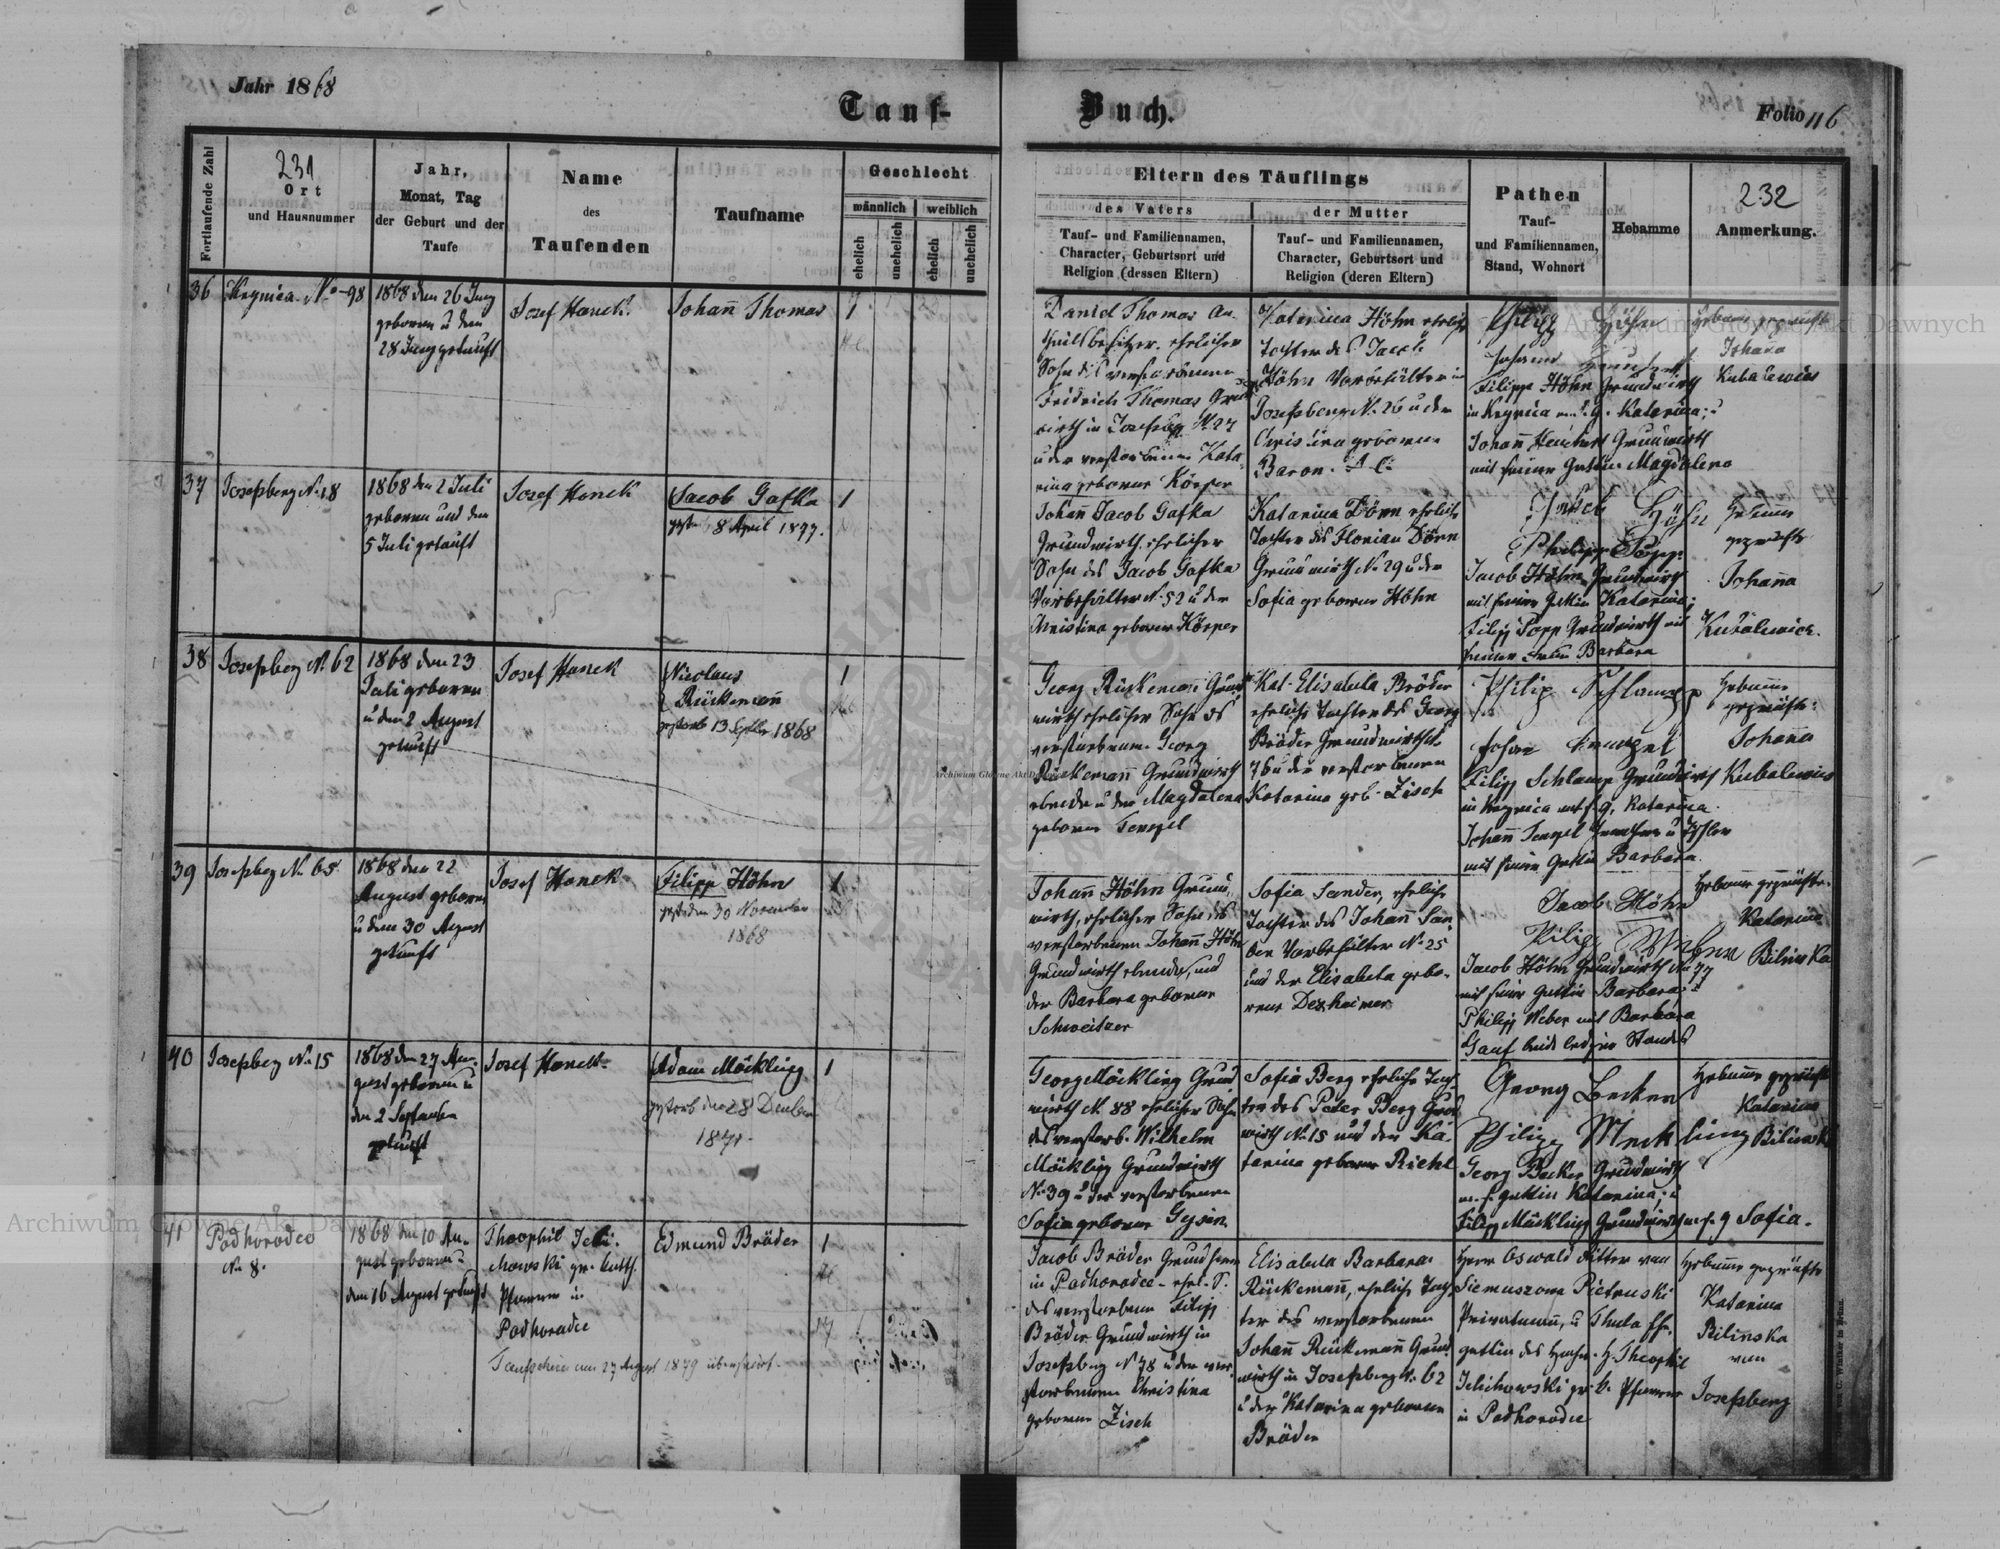 Jahr 1868
Tauf-
Buch.
Folio 116
Fortlaufende Zahl
231
Ort
und Hausnummer
Jahr,
Monat, Tag
der Geburt und der
Taufe
Name
des
Taufenden
Taufname
Geschlecht
männlich
weiblich
ehelich
unehelich
ehelich
unehelich
Eltern des Täuflings
des Vaters
Tauf- und Familiennamen,
Character, Geburtsort und
Religion (dessen Eltern)
der Mutter
Tauf- und Familiennamen,
Character, Geburtsort und
Religion (deren Eltern)
Pathen
Tauf-
und Familiennamen,
Stand, Wohnort
Hebamme
232
Anmerkung.
36
Krynica No 98
1868 den 26 Juny
geboren u den
28 Juny getauft
Josef Hanek
Johañ Thomas
1
Daniel Thomas
ehelicher
Sohn des verstorbenen
Fridrich Thomas Grund
wirth in
u der verstorbenen Kata
rina geborene Körper
Katarina Höhn eheliche
Tochter des Jacob
Höhn Vorbehälter in
Josefsberg No 26 u der
Christina geborene
Baron. A. C.
Philipp Höhn
Filipp Höhn Grundwirth
in Krynica m. s. g. Katarina; u
Johañ Grundwirth
mit seiner Gattin Magdalena
Hebame geprüfte
Johana
Kubalewicz
37
Josefsberg No 18
1868 den 2 Juli
geboren und den
5 Juli getauft
Josef Hanek
Jacob Gafka
gest. 8 April 1877.
1
Johañ Jacob Gafka
Grundwirth, ehelicher
Sohn des Jacob Gafka
Vorbehälter No 52 u der
Christina geborene Körper
Katarina Dörn eheliche
Tochter des Florian Dörn
Grundwirth No 29 u der
Sofia geborene Höhn
Jakob Höhn
Philipp Popp
Jacob Höhn Grundwirth
mit seiner Gattin Katarina;
Filipp Popp Grundwirth mit
seiner Gattin Barbara
Hebamme
geprüfte
Johaña
Kubalewicz.
38
Josefsberg No 62
1868 den 23
Juli geboren
u den 2 August
getauft
Josef Hanek
Nicolaus
Rückemañ
gestorb 13 Septber 1868
1
Georg Rückemañ Grund
wirth ehelicher Sohn des
verstorbenen Georg
Rückemañ Grundwirth
ebenda u der Magdalena
geborne Tempel
Kat. Elisabeta Bröder
eheliche Tochter des Georg
Bröder Grundwirth No
76 u der verstorbenen
Katarina geb. Zisch
Philip Schlamp
Johan
Filipp Schlamp Grundwirth
in Krynica mit s. g. Katarina.
mit seiner Gattin Barbara
Hebamme
geprüfte:
Johaña
Kubalewicz
39
Josefsberg No 65
1868 den 22
August geboren
u den 30 August
getauft
Josef Hanek
Filipp Höhn
gest. den 30 November
1868
1
Johañ Höhn Grund,
wirth, ehelicher Sohn des
verstorbenen Johañ Höhn
Grundwirth ebenda, und
der Barbara geborene
Schweitzer
Sofia Sander, eheliche
Tochter des Johañ San
der Vorbehälter No 25
und der Elisabeta gebo-
rene Dexheimer
Jacob Höhn
Filipp Weber
Jacob Höhn Grundwirth No 77
mit seiner Gattin Barbara; u
Philipp Weber mit Barbara
Gauf beide ledigen Standes
Hebame geprüfte.
Katarina
Bilinska
40
Josefsberg No 15
1868 den 27 Au-
gust geboren u
den 2 September
getauft
Josef Hanek
Adam Möckling
gestorb den 28 Dember
1871.
1
Georg Möckling Grund
wirth No 88 ehelicher Sohn
des verstorb. Wilhelm
Möckling Grundwirth
No 39 u der verstorbenen
Sofia geborne Gysin
Sofia Berg eheliche Toch-
ter des Peter Berg Grund
wirth No 15 und der Ka-
tarina geborene Riehl
Georg Becker
Philipp Meckling
Georg Becker Grundwirth
m. s. Gattin Katarina; u
Filipp Möckling Grundwirth m. s. g. Sofia.
Hebamme geprüfte
Katarina
Bilinska
41
Podhorodce
No 8.
1868 den 10 Au-
gust geboren u
den 16 August getauft
Theophil
gr. kath.
Pfarrer in
Podhorodce
Taufschein am 27 August 1879
Edmund Bröder
1
Jacob Bröder Grundherr
in Podhorodce - ehel. S.
des verstorbenen Filipp
Bröder Grundwirth in
Josefsberg No 78 u der ver
storbenen Christina
geborene Zisch
Elisabeta Barbara
Rückemañ, eheliche Toch-
ter des verstorbenen
Johañ Rückemañ Grund
wirth in Josefsberg No 62
u der Katarina geborene
Bröder
Herr Oswald Ritter von
Siemuszowa Pietruski
Privatmañ, u Thekla
gattin des H. Theophil
gr. k. Pfarrer
in Podhorodce
Hebamme geprüfte
Katarina
Bilinska
von
Josefsberg
Archiwum Główne Akt Dawnych
Archiwum Główne Akt Dawnych
Archiwum Główne Akt Dawnych